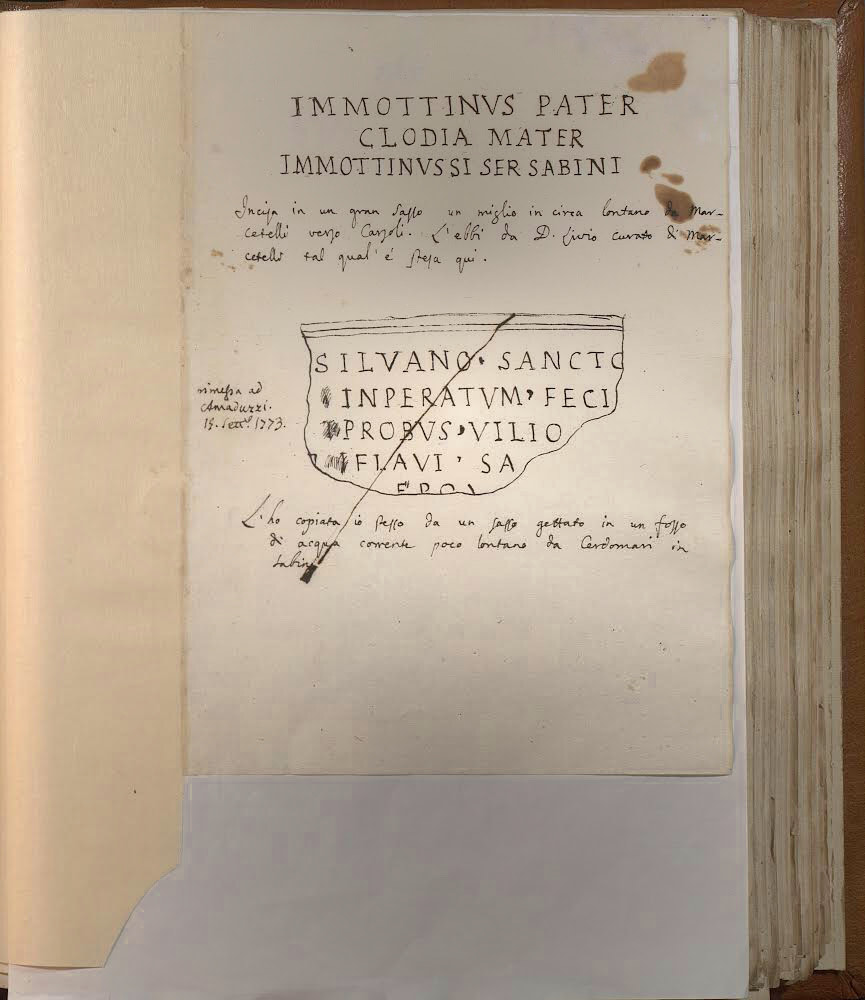 IMMOTTINVS PATER
CLODIA MATER
IMMOTTINVS SI SER SABINI
Incisa in un gran sasso un miglio in circa lontano da Mar-
cetelli verso Carsoli. L'ebbi da D. Livio curato di Mar-
cetelli tal qual'è stesa qui.
SILVANO · SANCTO
INPERATVM, FECI
PROBVS, VILIO
FLAVI , SA
rimessa ad
Amaduzzi.
15. Sett. 1773.
L'ho copiata io stesso da un sasso gettato in un fosso
di acqua corrente poco lontano da Cerdomari in
Sabina